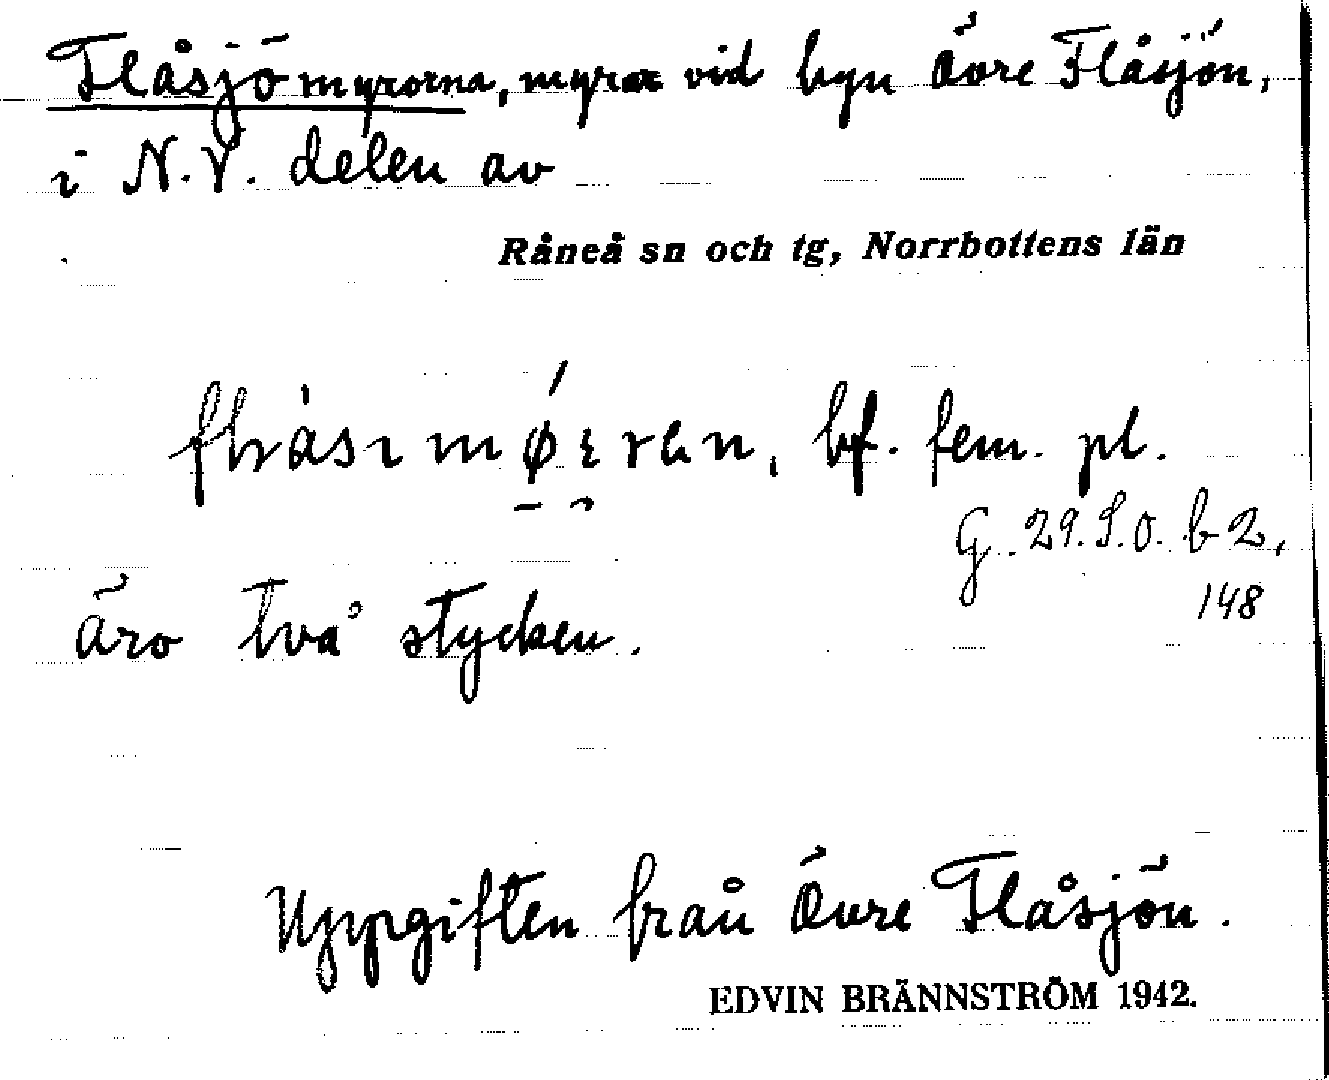 Flåsjömyrorna, myrar vid byn Övre Flåsjön,
i N.V. delen av
Råneå sn och tg, Norrbottens län
bf. fem. pl.
G. 29. S.O. b 2,
148
Äro två stycken.
Uppgiften från Övre Flåsjön.
EDVIN BRÄNNSTRÖM 1942.